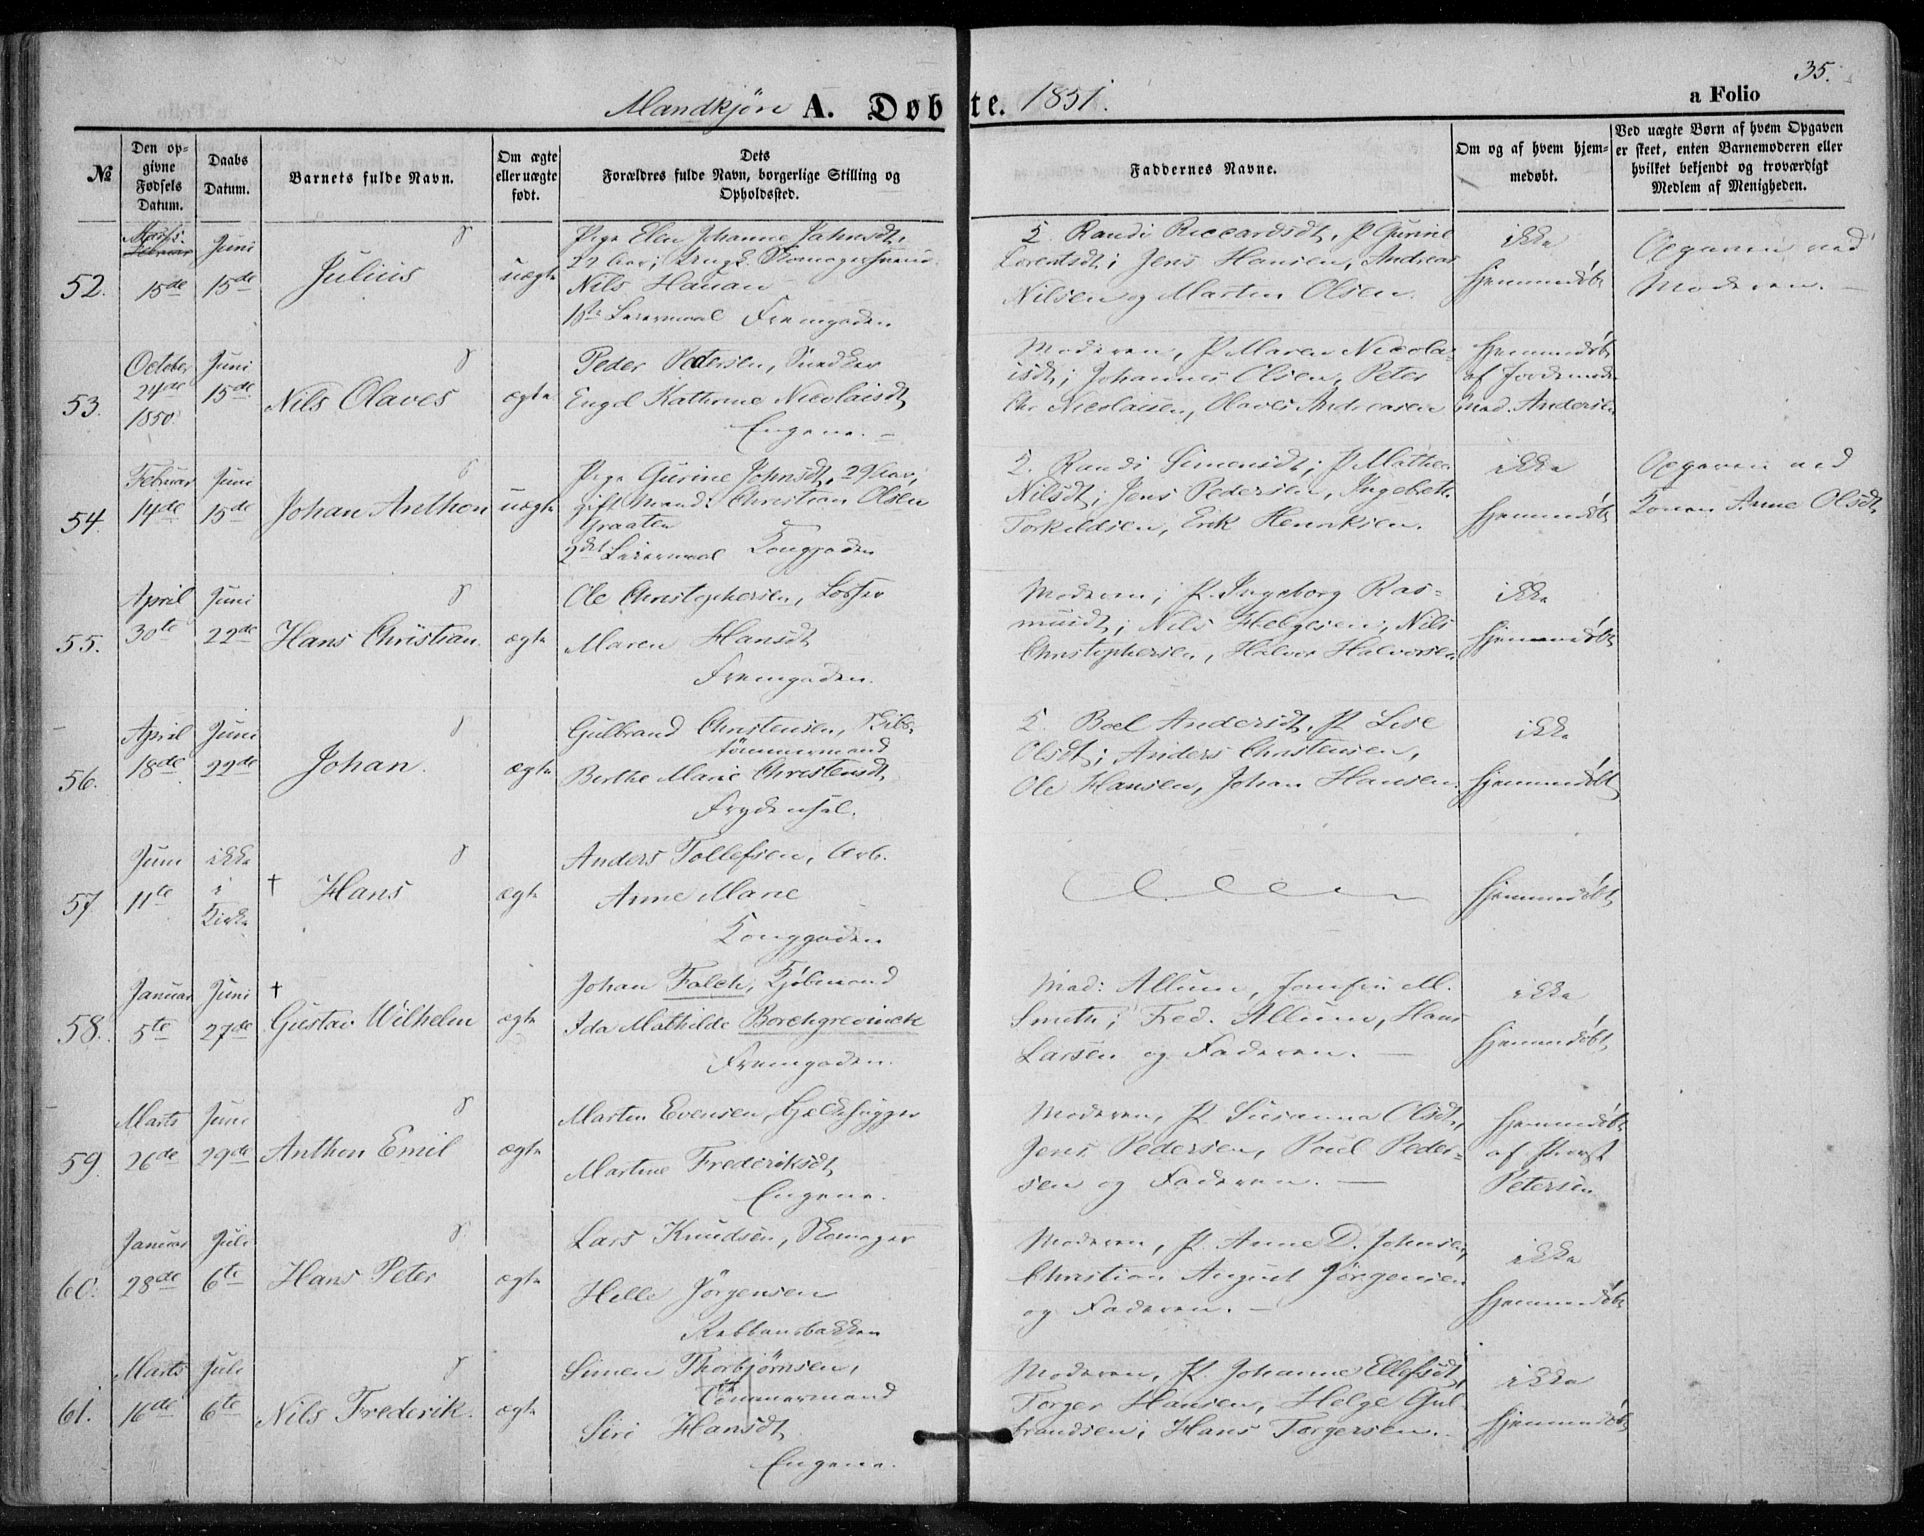 Mandkjøn A. Døbte. 1851.
35.
a Folio
№
Den opgivne Fødsels Datum.
Daabs Datum.
Barnets fulde Navn.
Om ægte eller uægte født.
Dets Forældres fulde Navn, borgerlige Stilling og Opholdssted.
Faddernes Navne.
Om og af hvem hjemmedøbt.
Ved uægte Børn af hvem Opgaven er skeet, enten Barnemoderen eller hvilket bekjendt og troværdigt Medlem af Menigheden.
52.
Marts
15de
Juni
15de
Julius
uægte
Pige Elen Johanne Jahnsdt,
27 Aar; Ungk. Skomagersvend
Nils Hauan
1ste Leiermaal Fremgaden
K. Randi Riccardsdt, P. Gurine
Lorentsdt; Jens Hansen, Andreas
Nilsen og Marten Olsen.
ikke
hjemmedøbt
Opgaven ved
Moderen.
53.
October
24de
1850.
Juni
15de
Nils Olaves
ægte
Peder Pedersen, Snedker
Engel Kathrine Nicolaisdt
Engene.
Moderen, P. Maren Nicola-
isdt; Johannes Olsen, Peter
Chr. Nicolaisen, Olaves Andreasen
hjemmedøbt
af Jordemoder
Mad. Andersen
54.
Februar
14de
Juni
15de
Johan Anthon
uægte
Pige Gurine Johnsdt, 29 Aar,
gift Mand Christian Olsen
Graaten
2det Leiermaal Konggaden
K. Randi Simensdt; P. Mathea
Nilsdt; Jens Pedersen, Ingebret
Torkildsen, Erik Henriksen.
ikke
hjemmedøbt
Opgaven ved
Konen Anne Olsdt.
55.
April
30te
Juni
22de
Hans Christian.
ægte
Ole Christophersen, Losser
Maren Hansdt
Fremgaden.
Moderen; P. Ingeborg Ras-
musdt; Nils Helgesen, Nils
Christophersen, Halvor Halvorsen
ikke
hjemmedøbt
56.
April
18de
Juni
22de
Johan.
ægte
Gulbrand Christensen, Skibs-
tømmermand
Berthe Marie Christensdt,
Frydensal.
K. Boel Andersdt, P. Lise
Olsdt; Anders Christensen,
Ole Hansen, Johan Hansen.
ikke
hjemmedøbt
57
Juni
11te
ikke
i
Kirke
† Hans
ægte
Anders Tollefsen, Arb.
Anne Marie
Konggaden
hjemmedøbt
58.
Januar
5te
Juni
27de
†
Gustav Wilhelm
ægte
Johan Falch, Kjøbmand
Ida Mathilde Borchgrevinck
Fremgaden.
Mad: Allum, Jomfru M.
Smith; Fred. Allum, Hans
Larsen og Faderen.
ikke
hjemmedøbt
59.
Marts
26de
Juni
29de
Anthon Emil
ægte
Marten Evensen,
Martine Frederiksdt,
Engene.
Moderen, P. Susanna Olsdt,
Jens Pedersen, Poul Peder-
sen og Faderen.
hjemmedøbt
af Provst
Petersen
60.
Januar
28de
Juli
6te
Hans Peter
ægte
Lars Knudsen, Skomager
Helle Jörgensen
Rebbansbakken
Moderen, P. Anne D. Johnsen,
Christian August Jörgensen
og Faderen.
ikke
hjemmedøbt
61.
Marts
16de
Juli
6te
Nils Frederik.
ægte
Simen Thorbjørnsen,
Tömmermand
Siri Hansdt
Engene.
Moderen, P. Johanne Ellefsdt,
Torger Hansen, Helge Gul-
brandsen; Hans Torgersen.
ikke
hjemmedøbt